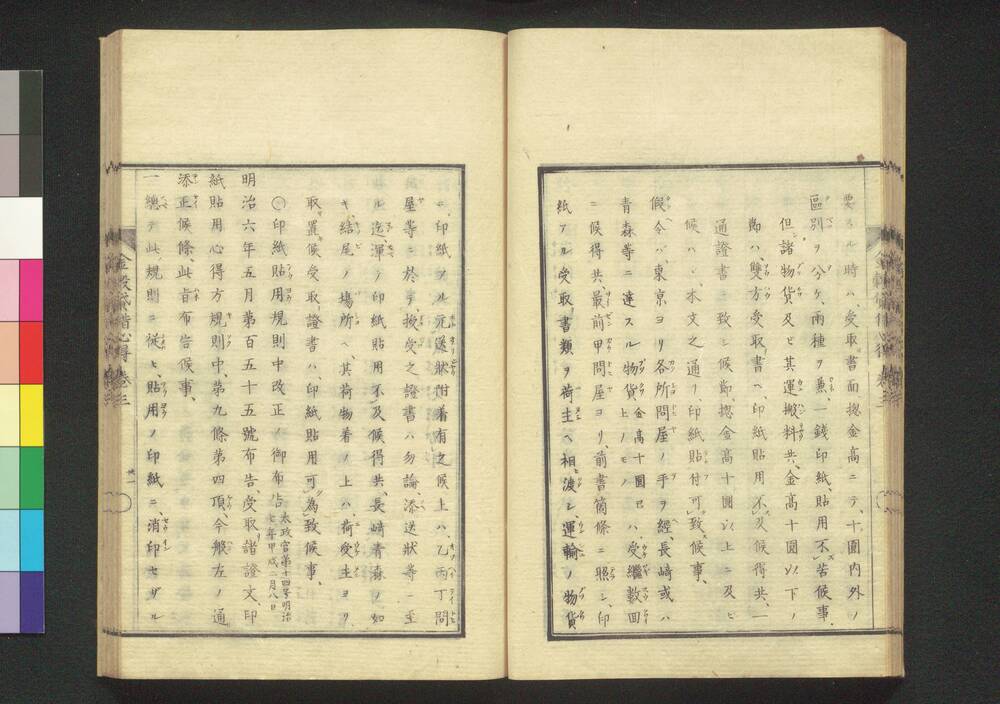 要スル時ハ、受取書面惣金高ニテ、十圓内外ノ
區別ヲ分ケ、兩種ヲ兼、一錢印紙、貼用不苦候事、
但シ諸物貨及ヒ其運搬料共、金高十圓以下ノ
節ハ、雙方受取書ヘ、印紙貼用不及候得共、一
通證書ニ致シ候節、惣金高十圓以上ニ及ヒ
候ハヽ、本文之通リ、印紙貼付可致候事、
假令ハ、東京ヨリ各所問屋ノ手ヲ經、長崎或ハ
青森等ニ達スル物貨金高十圓已上ノモノハ受繼數回
ニ候得共、最前甲問屋ヨリ、前書箇條ニ照シ、印
紙アル受取書類ヲ荷主ヘ相渡シ、運輸ノ物貨
ニ、印紙アル元送狀附着有之候上ハ、乙丙丁問
屋等ニ於テ授受之證書ハ勿論添送狀等ニ至
ル迄渾テ印紙貼用不及候得共、長崎青森ノ如
キ、結尾ノ場所ヘ、其荷物着ノ上ハ、荷受主ヨリ、
取置候受取證書ハ、印紙貼用可為致候事、
◯印紙貼用規則中改正ノ御布告 太政官第十四号明治七年甲戌二月八日
明治六年五月第百五十五號布告、受取諸證文、印
紙貼用心得方規則中、第九條第四項、今般左ノ通
添正候條、此旨布告候事、
一總テ此規則ニ從ヒ、貼用ノ印紙ニ、消印セザル
金穀貸借心得 卷三
金穀貸借心得 卷三